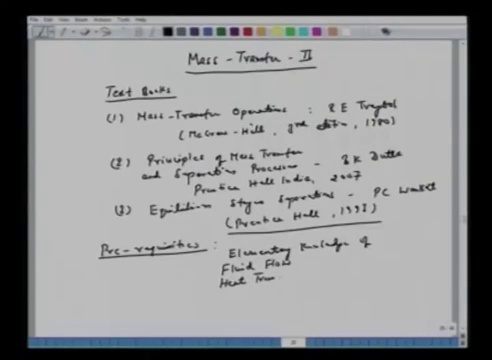 Mass-Transfer-II
Text Books
(1) Mass-Transfer Operations : R E Treybal
(McGraw-Hill, 3rd edition, 1980)
(2) Principles of Mass Transfer
and Separation Processes - B K Dutta
Prentice Hall India, 2007
(3) Equilibrium Stages Separations - PC Wankat
(Prentice Hall, 1993)
Pre-requisites : Elementary Knowledge of
Fluid Flow
Heat Tran